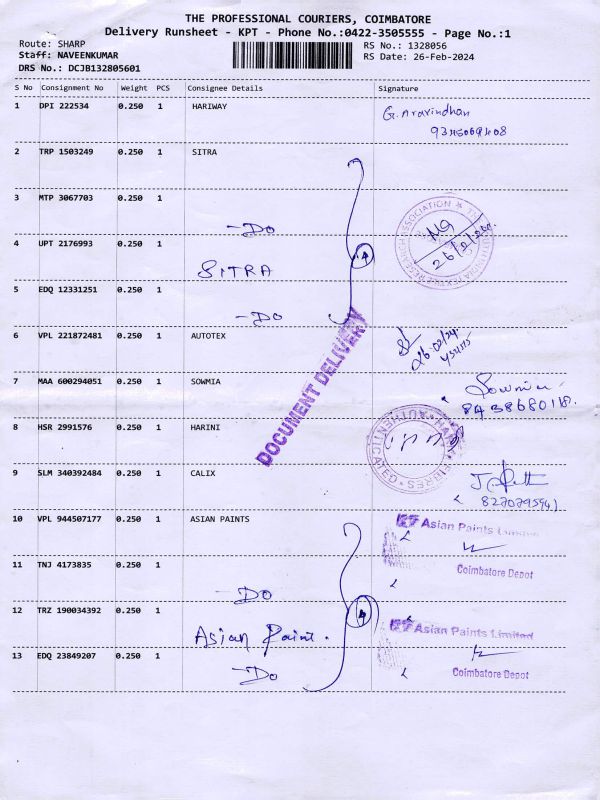 THE PROFESSIONAL COURIERS, COIMBATORE
Delivery Runsheet - KPT - Phone No.:0422-3505555 - Page No.:1
Route: SHARP
RS No.: 1328056
Staff: NAVEENKUMAR
RS Date: 26-Feb-2024
DRS No.: DCJB132805601
S No Consignment No Weight PCS Consignee Details Signature
1 DPI 222534 0.250 1 HARIWAY G. Aravindhan
2 TRP 1503249 0.250 1 SITRA
3 MTP 3067703 0.250 1
-Do
4 UPT 2176993 0.250 1
SITRA
5 EDQ 12331251 0.250 1
-Do
DOCUMENT DELIVERY
6 VPL 221872481 0.250 1 AUTOTEX
26/02/24
7 MAA 600294051 0.250 1 SOWMIA Sowmia
8 HSR 2991576 0.250 1 HARINI
HARINI FIBRES
AUTHENTICATED
9 SLM 340392484 0.250 1 CALIX
10 VPL 944507177 0.250 1 ASIAN PAINTS
Asian Paints Limited
Coimbatore Depot
11 TNJ 4173835 0.250 1
-Do
12 TRZ 190034392 0.250 1
Asian Paint.
Asian Paints Limited
13 EDQ 23849207 0.250 1
-Do
Coimbatore Depot